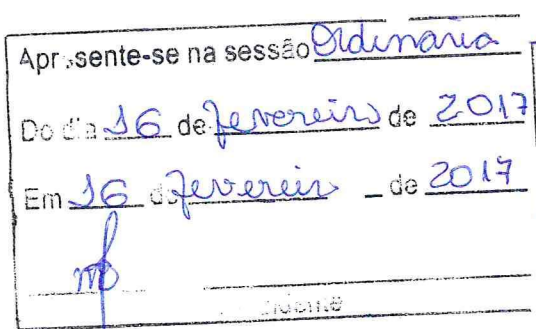 Apresente-se na sessão Ordinaria
Do dia 16 de fevereiro de 2017
Em 16 de fevereiro de 2017